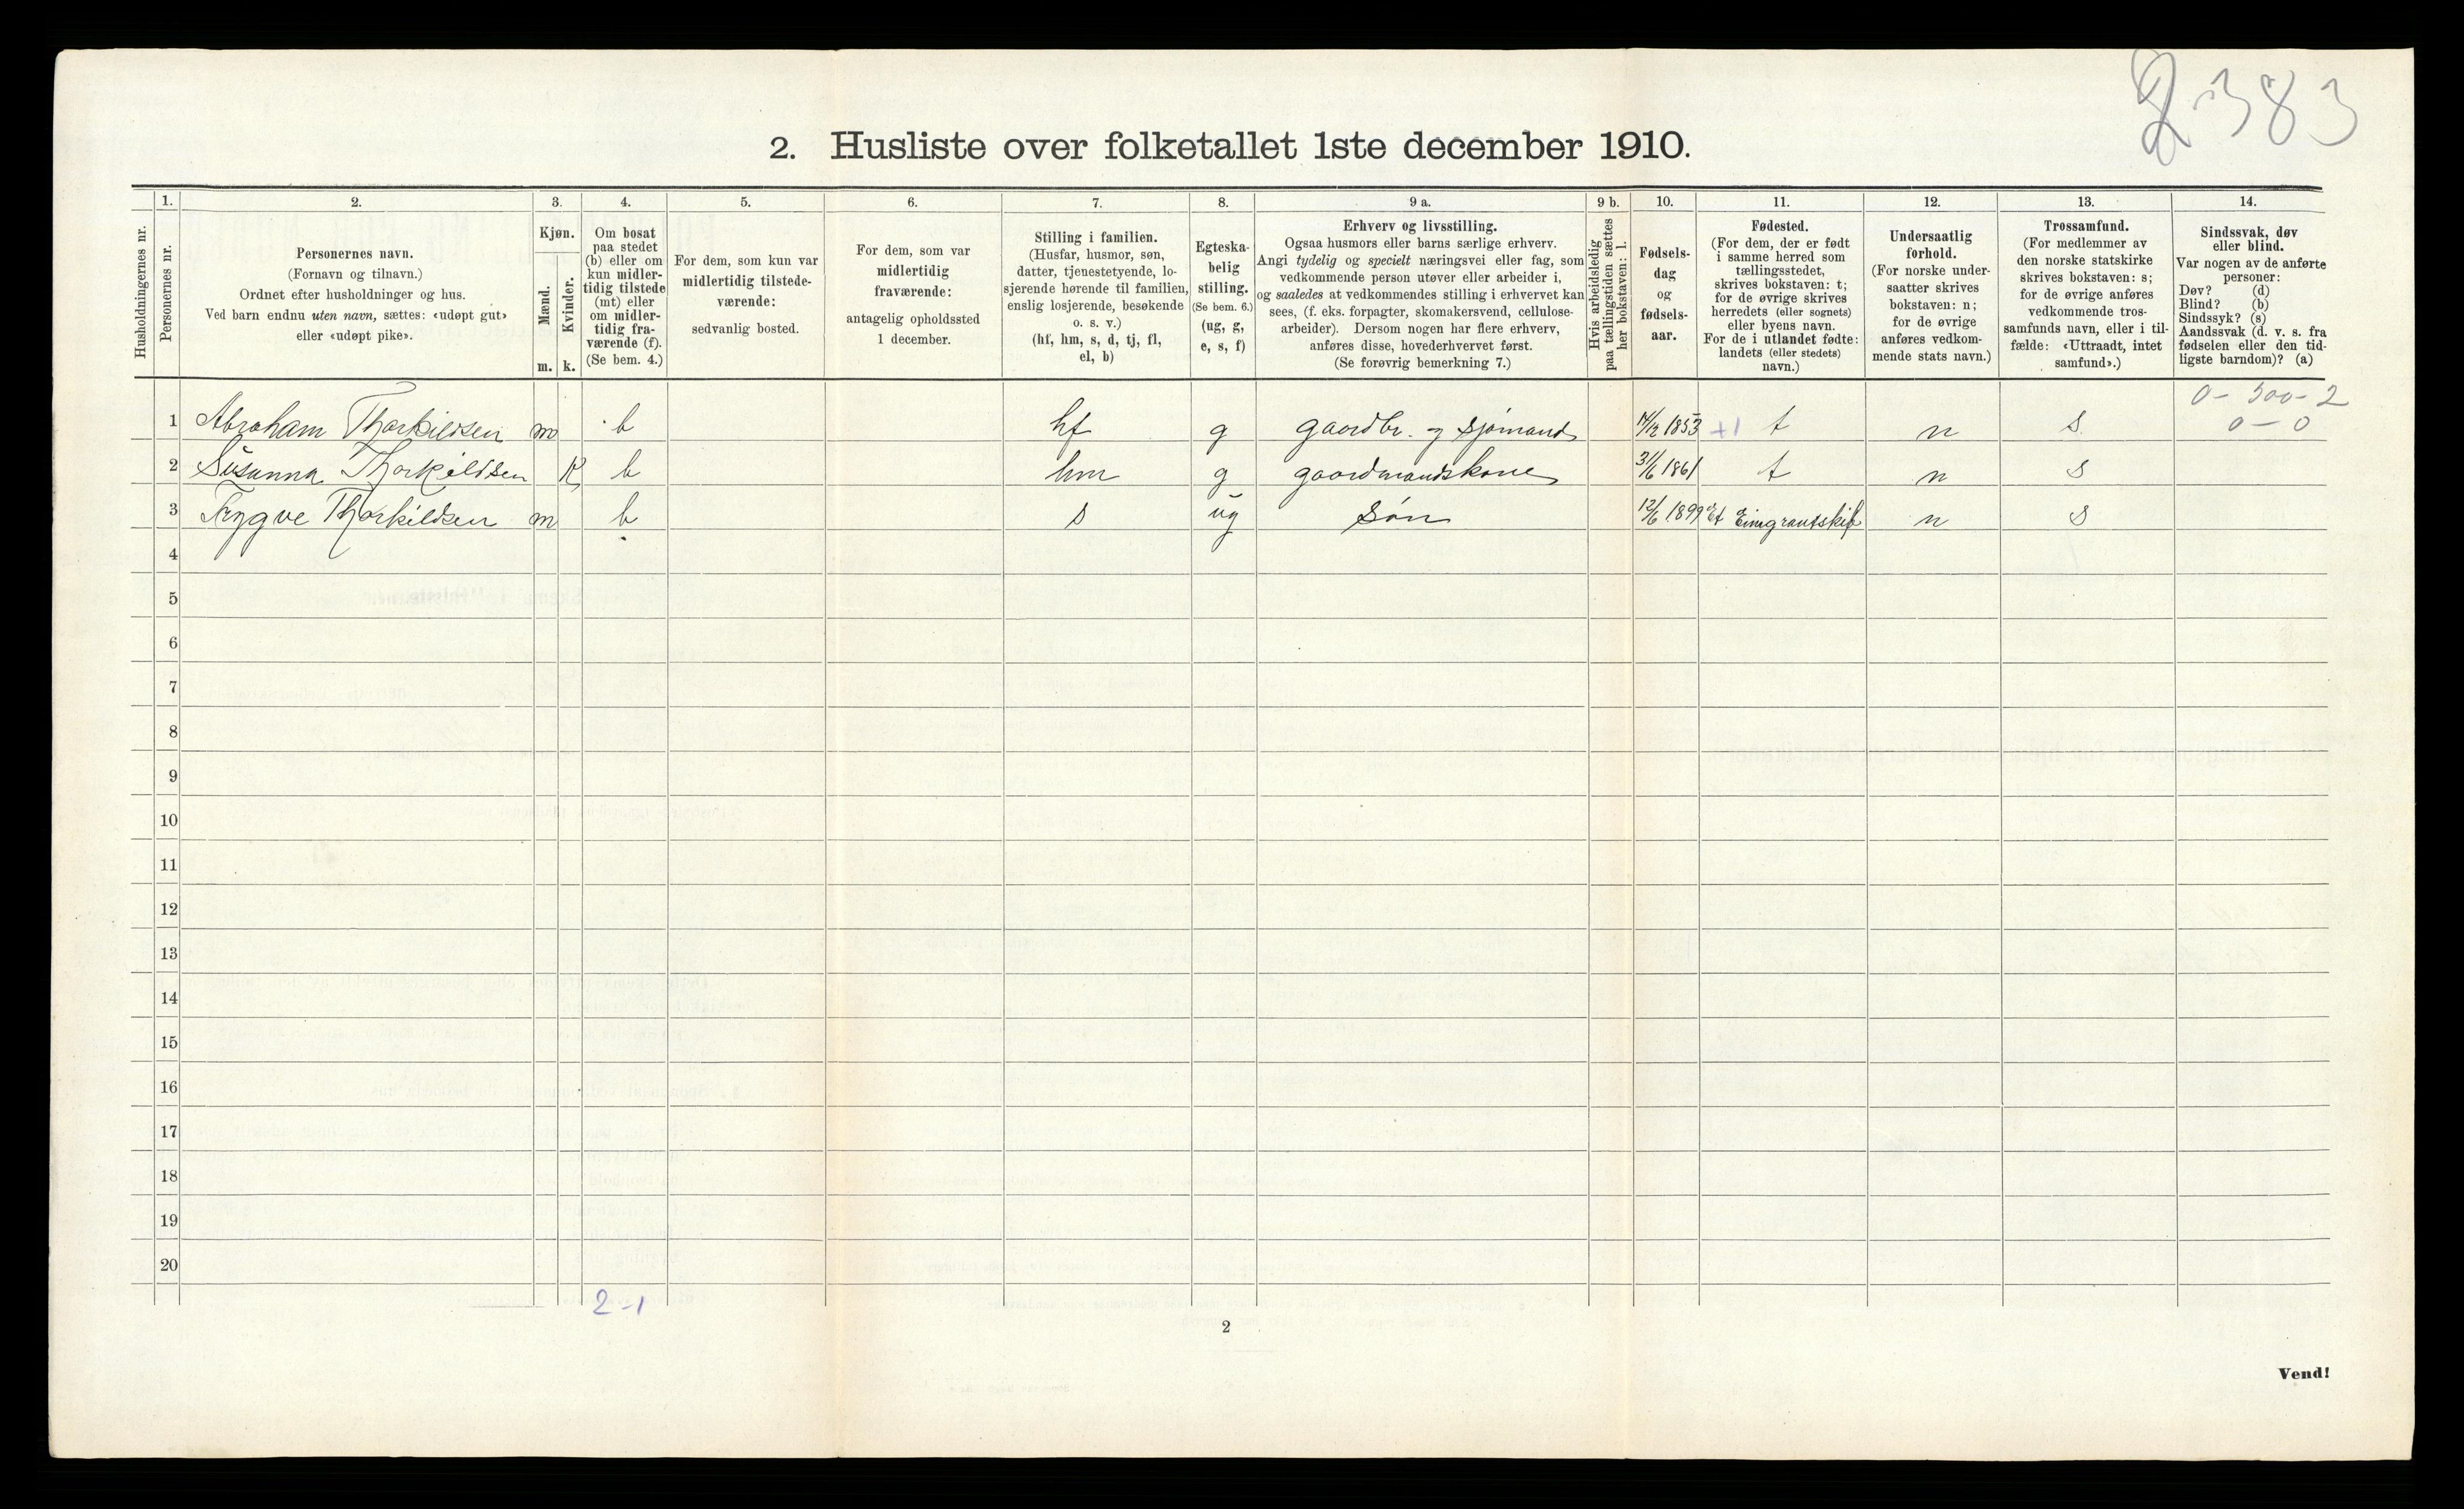 2-383
2. Husliste over folketallet 1ste december 1910.
Husholdningernes nr.
1.
Personernes nr.
2.
Personernes navn.
(Fornavn og tilnavn.)
Ordnet efter husholdninger og hus.
Ved barn endnu uten navn, sættes: «udøpt gut»
eller «udøpt pike».
3.
Kjøn.
Mænd.
Kvinder.
m. k.
4.
Om bosat
paa stedet
(b) eller om
kun midler-
tidig tilstede
(mt) eller
om midler-
tidig fra-
værende (f).
(Se bem. 4.)
5.
For dem, som kun var
midlertidig tilstede-
værende:
sedvanlig bosted.
6.
For dem, som var
midlertidig
fraværende:
antagelig opholdssted
1 december.
7.
Stilling i familien.
(Husfar, husmor, søn,
datter, tjenestetyende, lo-
sjerende hørende til familien,
enslig losjerende, besøkende
o. s. v.)
(hf, hm, s, d, tj, fl,
el, b)
8.
Egteska-
belig
stilling.
(Se bem. 6.)
(ug, g,
e, s, f)
9 a.
Erhverv og livsstilling.
Ogsaa husmors eller barns særlige erhverv.
Angi tydelig og specielt næringsvei eller fag, som
vedkommende person utøver eller arbeider i,
og saaledes at vedkommendes stilling i erhvervet kan
sees, (f. eks. forpagter, skomakersvend, cellulose-
arbeider). Dersom nogen har flere erhverv,
anføres disse, hovederhvervet først.
(Se forøvrig bemerkning 7.)
9 b.
Hvis arbeidsledig
paa tællingstiden sættes
her bokstaven: l.
10.
Fødsels-
dag
og
fødsels-
aar.
11.
Fødested.
(For dem, der er født
i samme herred som
tællingsstedet,
skrives bokstaven: t;
for de øvrige skrives
herredets (eller sognets)
eller byens navn.
For de i utlandet fødte:
landets (eller stedets)
navn.)
12.
Undersaatlig
forhold.
(For norske under-
saatter skrives
bokstaven: n;
for de øvrige
anføres vedkom-
mende stats navn.)
13.
Trossamfund.
(For medlemmer av
den norske statskirke
skrives bokstaven: s;
for de øvrige anføres
vedkommende tros-
samfunds navn, eller i til-
fælde: «Uttraadt, intet
samfund».)
14.
Sindssvak, døv
eller blind.
Var nogen av de anførte
personer:
Døv? (d)
Blind? (b)
Sindssyk? (s)
Aandssvak (d. v. s. fra
fødselen eller den tid-
ligste barndom)? (a)
0-300-2
1 Abraham Thorkildsen m b hf g gaardbr. og sjømand 1853 +1 t n s 0-0
2 Susanna Thorkildsen K b hm g gaardmandskone 31/6 1861 t n s
3 Trygve Thorkildsen m b s ug søn 12/6 1899 Et Emigrantskib n s
4
5
6
7
8
9
10
11
12
13
14
15
16
17
18
19
20
2-1
2
Vend!